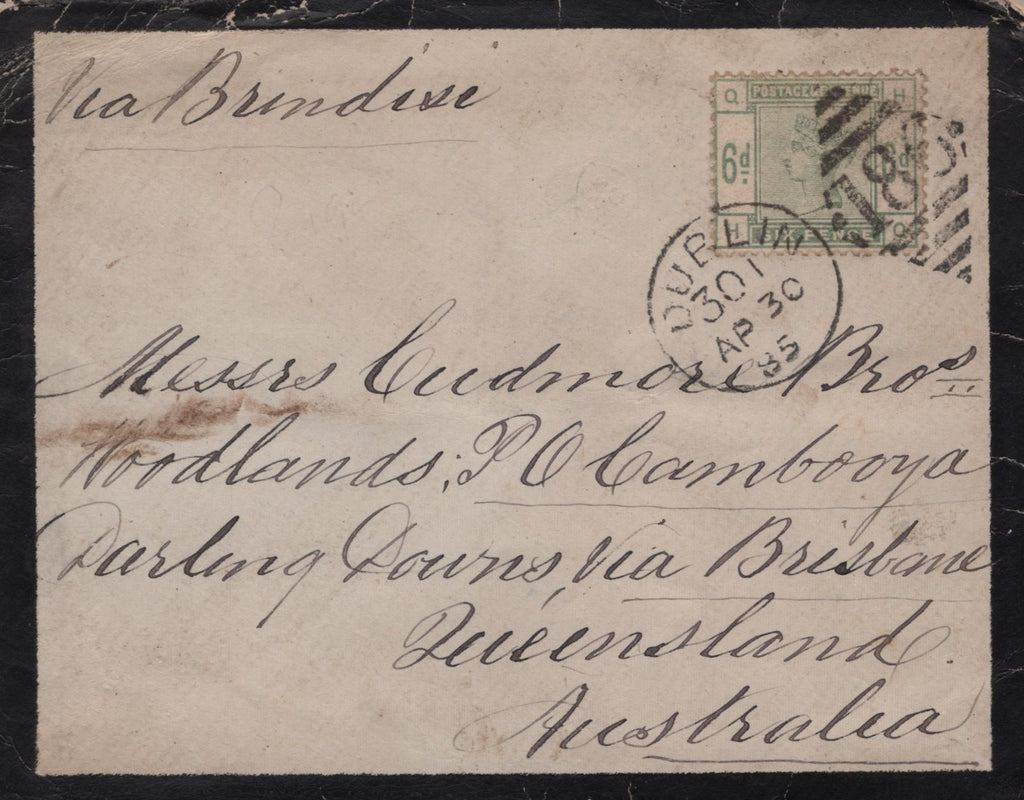 Via Brindisi
Q POSTAGE & REVENUE H
6d.
H SIX PENCE Q
186
DUBLIN
301
AP 30
85
Messrs Cudmore Bros
Woodlands; P O Cambooya
Darling Downs, Via Brisbane
Queensland.
Australia